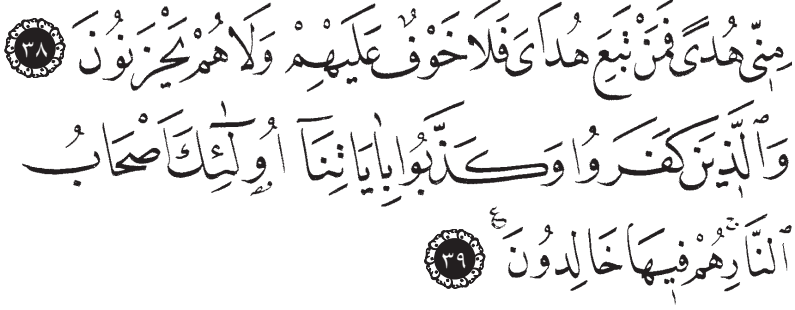 مِنِّي هُدًى فَمَنْ تَبِعَ هُدَايَ فَلَا خَوْفٌ عَلَيْهِمْ وَلَا هُمْ يَحْزَنُونَ ٣٨
وَٱلَّذِينَ كَفَرُوا وَكَذَّبُوا بِاٰيَاتِنَآ اُو۬لٰٓئِكَ اَصْحَابُ
ٱلنَّارِۚ هُمْ فِيهَا خَالِدُونَ ۟ع ٣٩